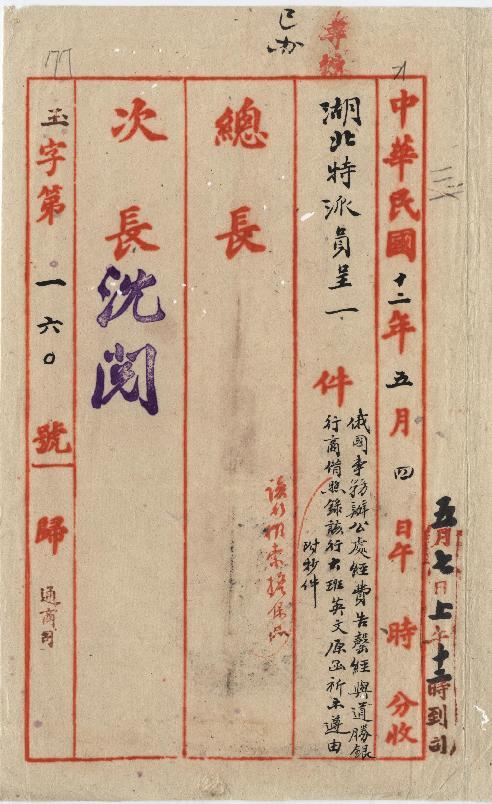 已办
中華民國十二年五月四日午時分收
五月七日上午十二時到司
湖北特派員呈一件
俄國事務辦公處經費告罄經與道勝銀
行商借照錄該行大班英文原函祈示遵由
附抄件
總長
次長
沈閱
玉字第一六〇號歸
通商司